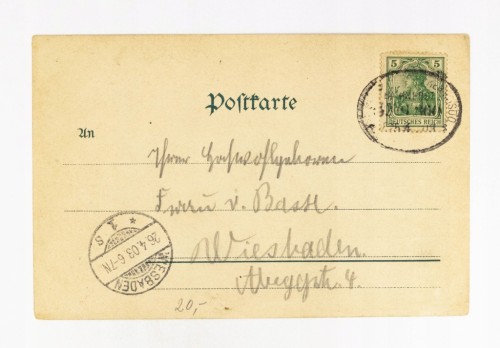 5 5
DEUTSCHES REICH
Postkarte
An
Ihrer Hochwohlgeboren
Frau v. Basse.
Wiesbaden.
Abeggstr. 4.
WIESBADEN
26.4.03 6-7N
* 1 s
20,-